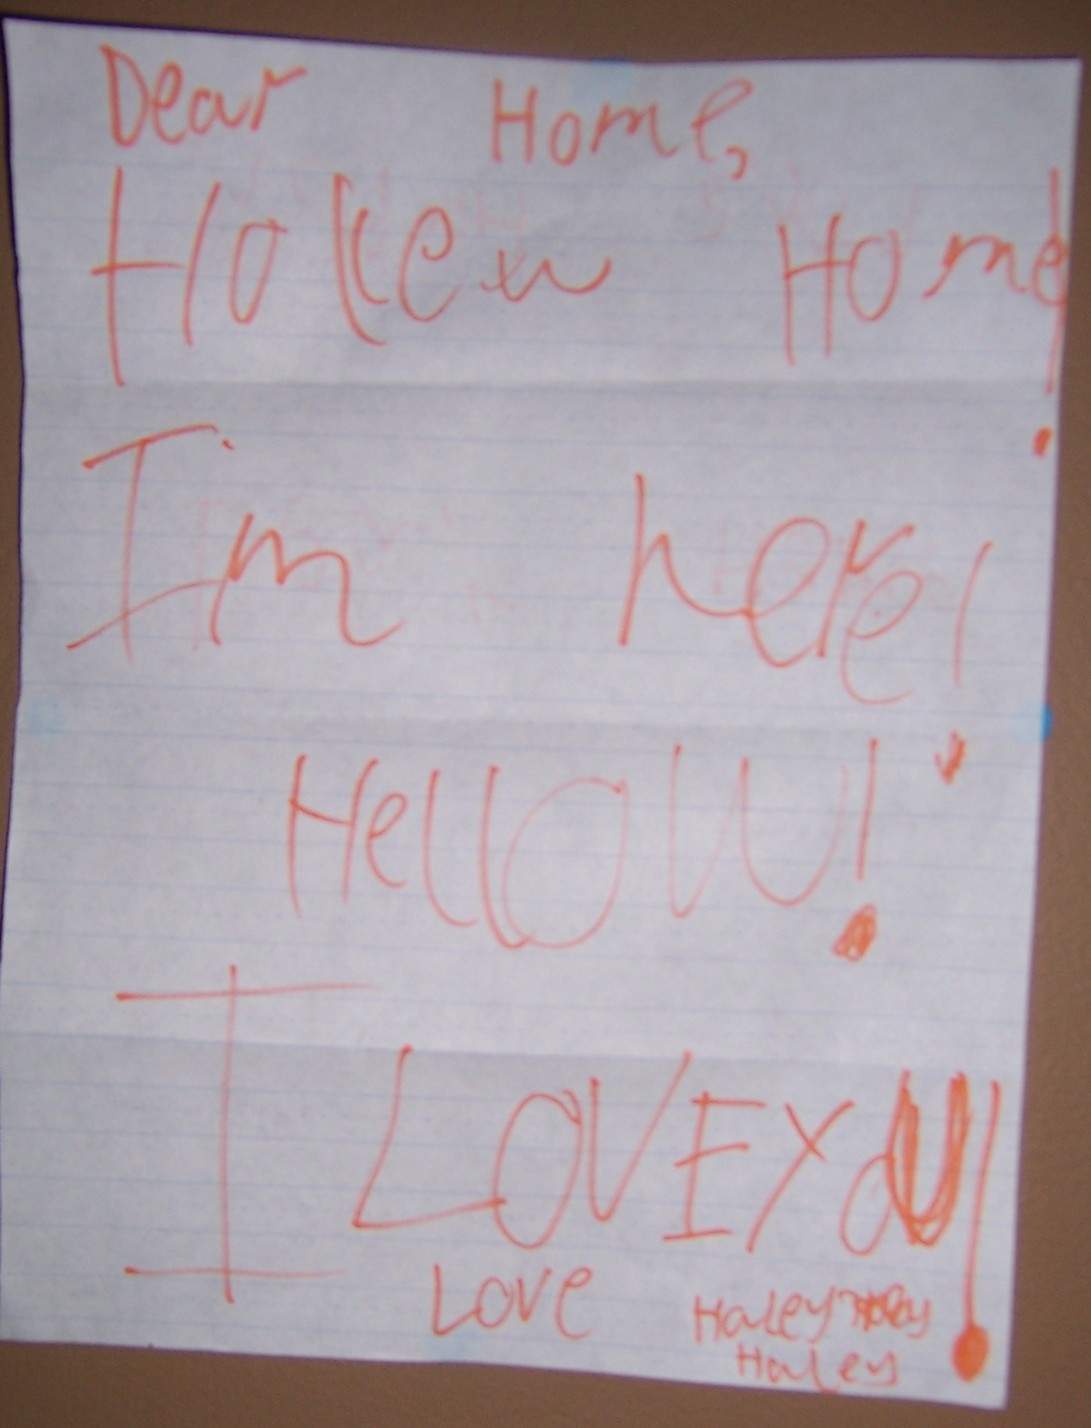 Dear Home,
Home!
I'm here!
HellOW!
I LOVE YOU!
Love Haley
Haley